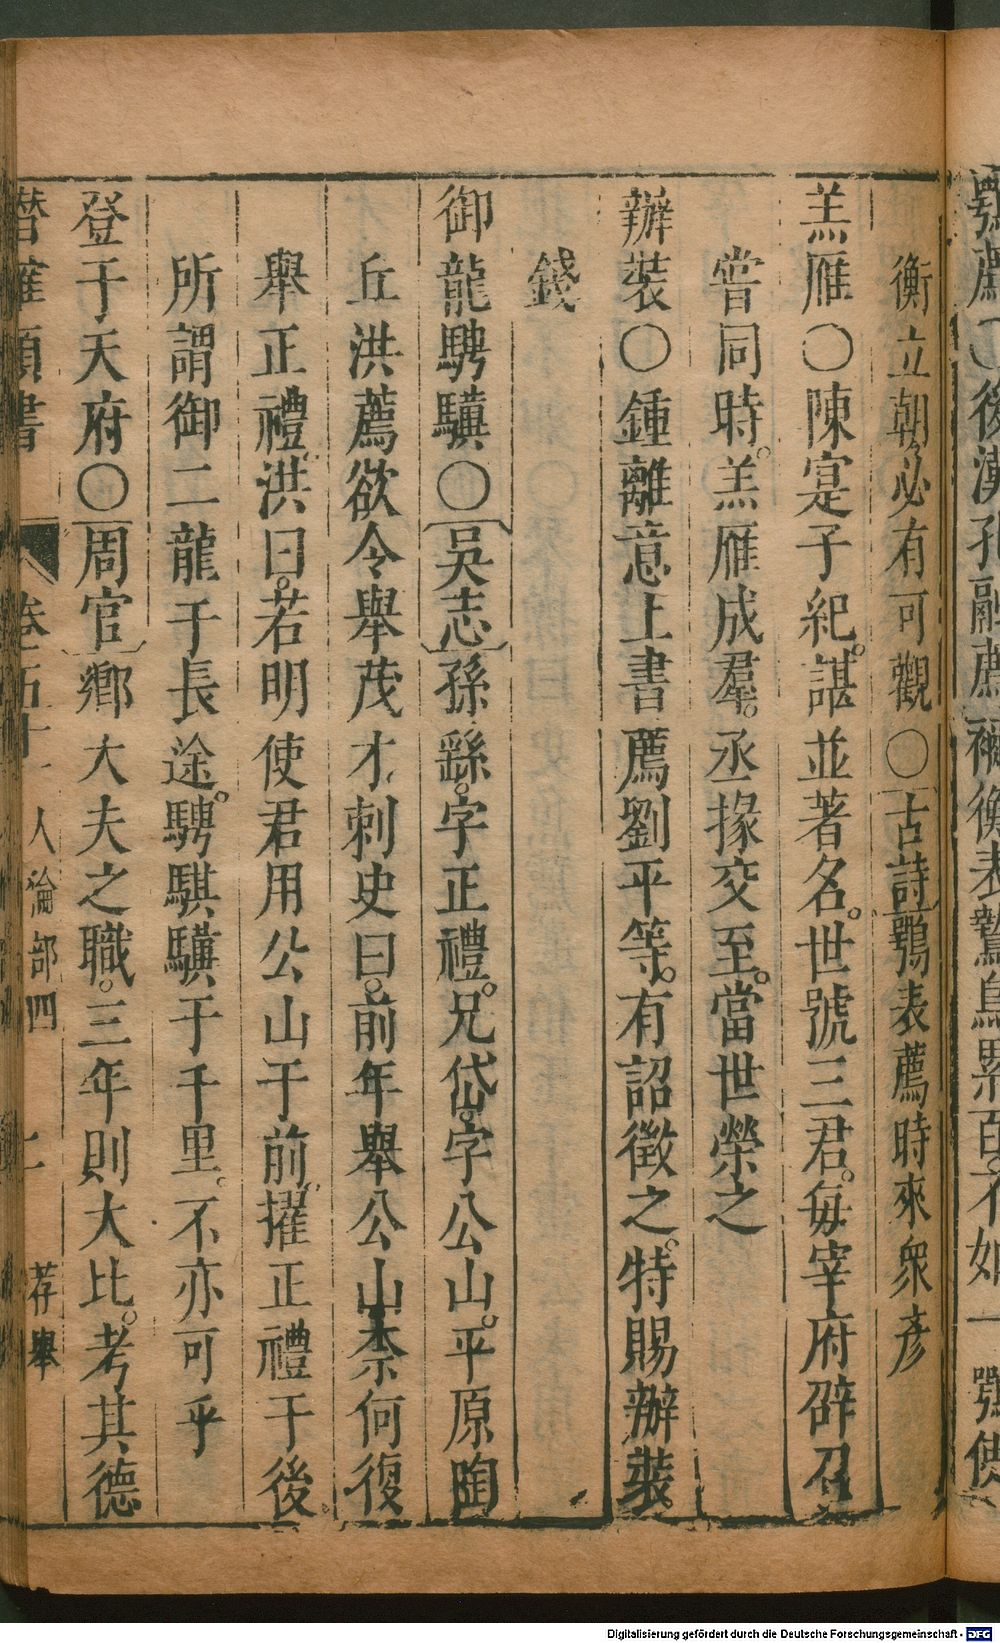 鶚薦〇後漢孔融薦禰衡表鷙鳥累百。不如一鶚使
衡立朝。必有可觀〇古詩鶚表薦時來衆彥
羔雁〇陳寔子紀。諶並著名。世號三君。每宰府辟召
嘗同時。羔雁成羣。丞掾交至。當世榮之
辦裝〇鍾離意上書薦劉平等。有詔徵之。特賜辦裝
錢
御龍騁驥〇吳志孫繇。字正禮。兄岱。字公山。平原陶
丘洪薦欲令舉茂才刺史曰。前年舉公山柰何復
舉正禮。洪曰。若明使君用公山于前。擢正禮于後
所謂御二龍于長途。騁騏驥于千里。不亦可乎
登于天府〇周官鄉大夫之職。三年則大比。考其德
卷五十一 人倫部四 荐舉
Digitalisierung gefördert durch die Deutsche Forschungsgemeinschaft - DFG